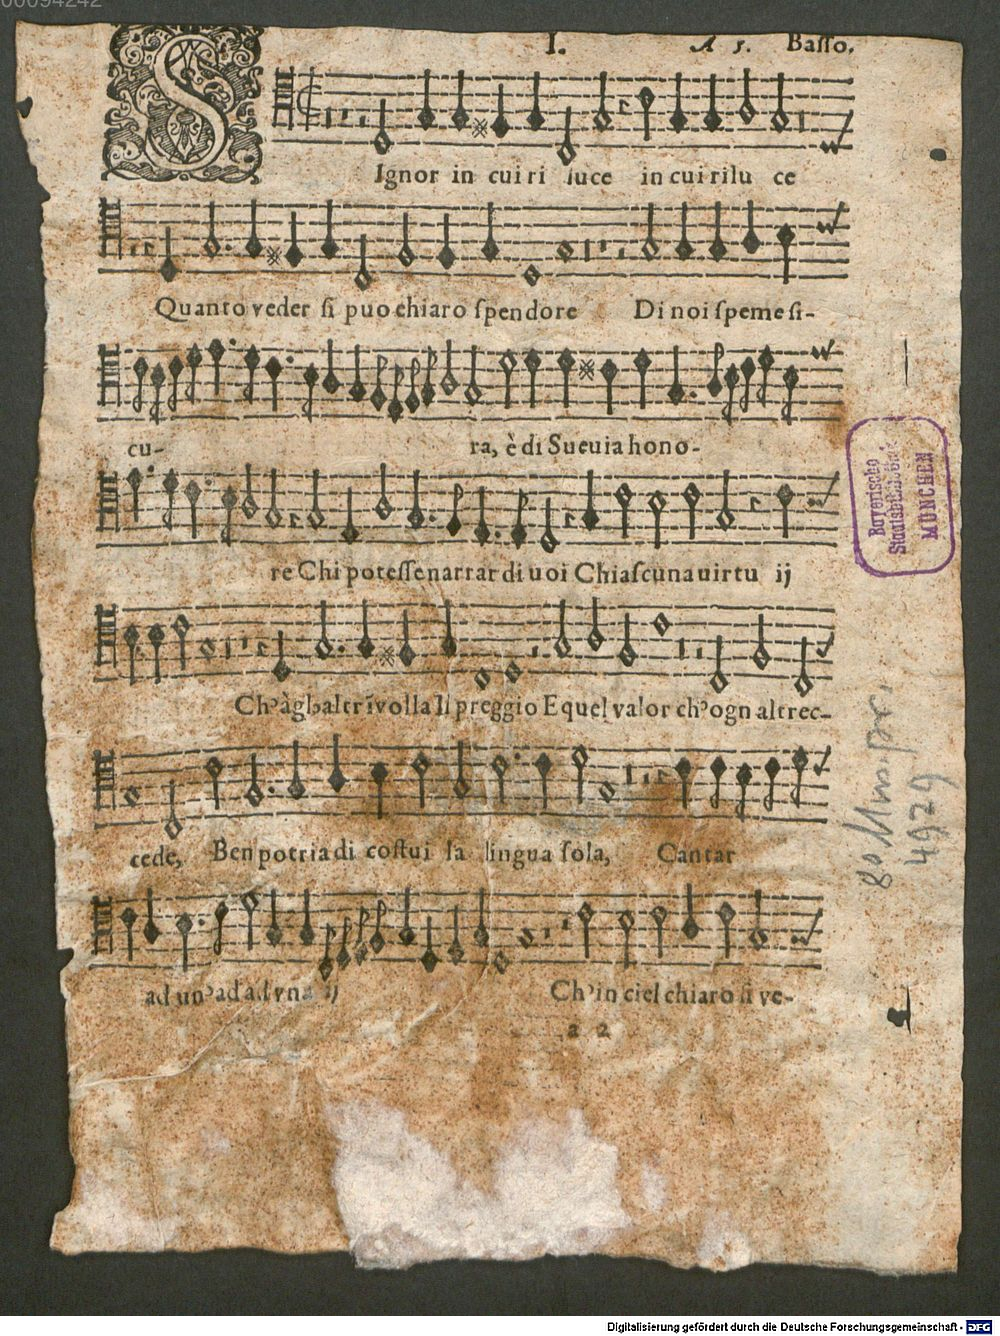 00094242
I. A 5. Basso.
SIgnor in cui ri luce in cui rilu ce
Quanto veder si puo chiaro spendore Di noi speme si-
cu- ra, è di Sueuia hono-
re Chi potesse narrar di uoi Chiascuna uirtu ij
Ch'àgl'altri volla Il preggio E quel valor ch'ogn altrec-
cede, Ben potria di costui la lingua sola, Cantar
ad un' ad ad vna ij Ch'in ciel chiaro si ve-
a 2
Bayerische
Staatsbibliothek
MÜNCHEN
4929
Digitalisierung gefördert durch die Deutsche Forschungsgemeinschaft - DFG